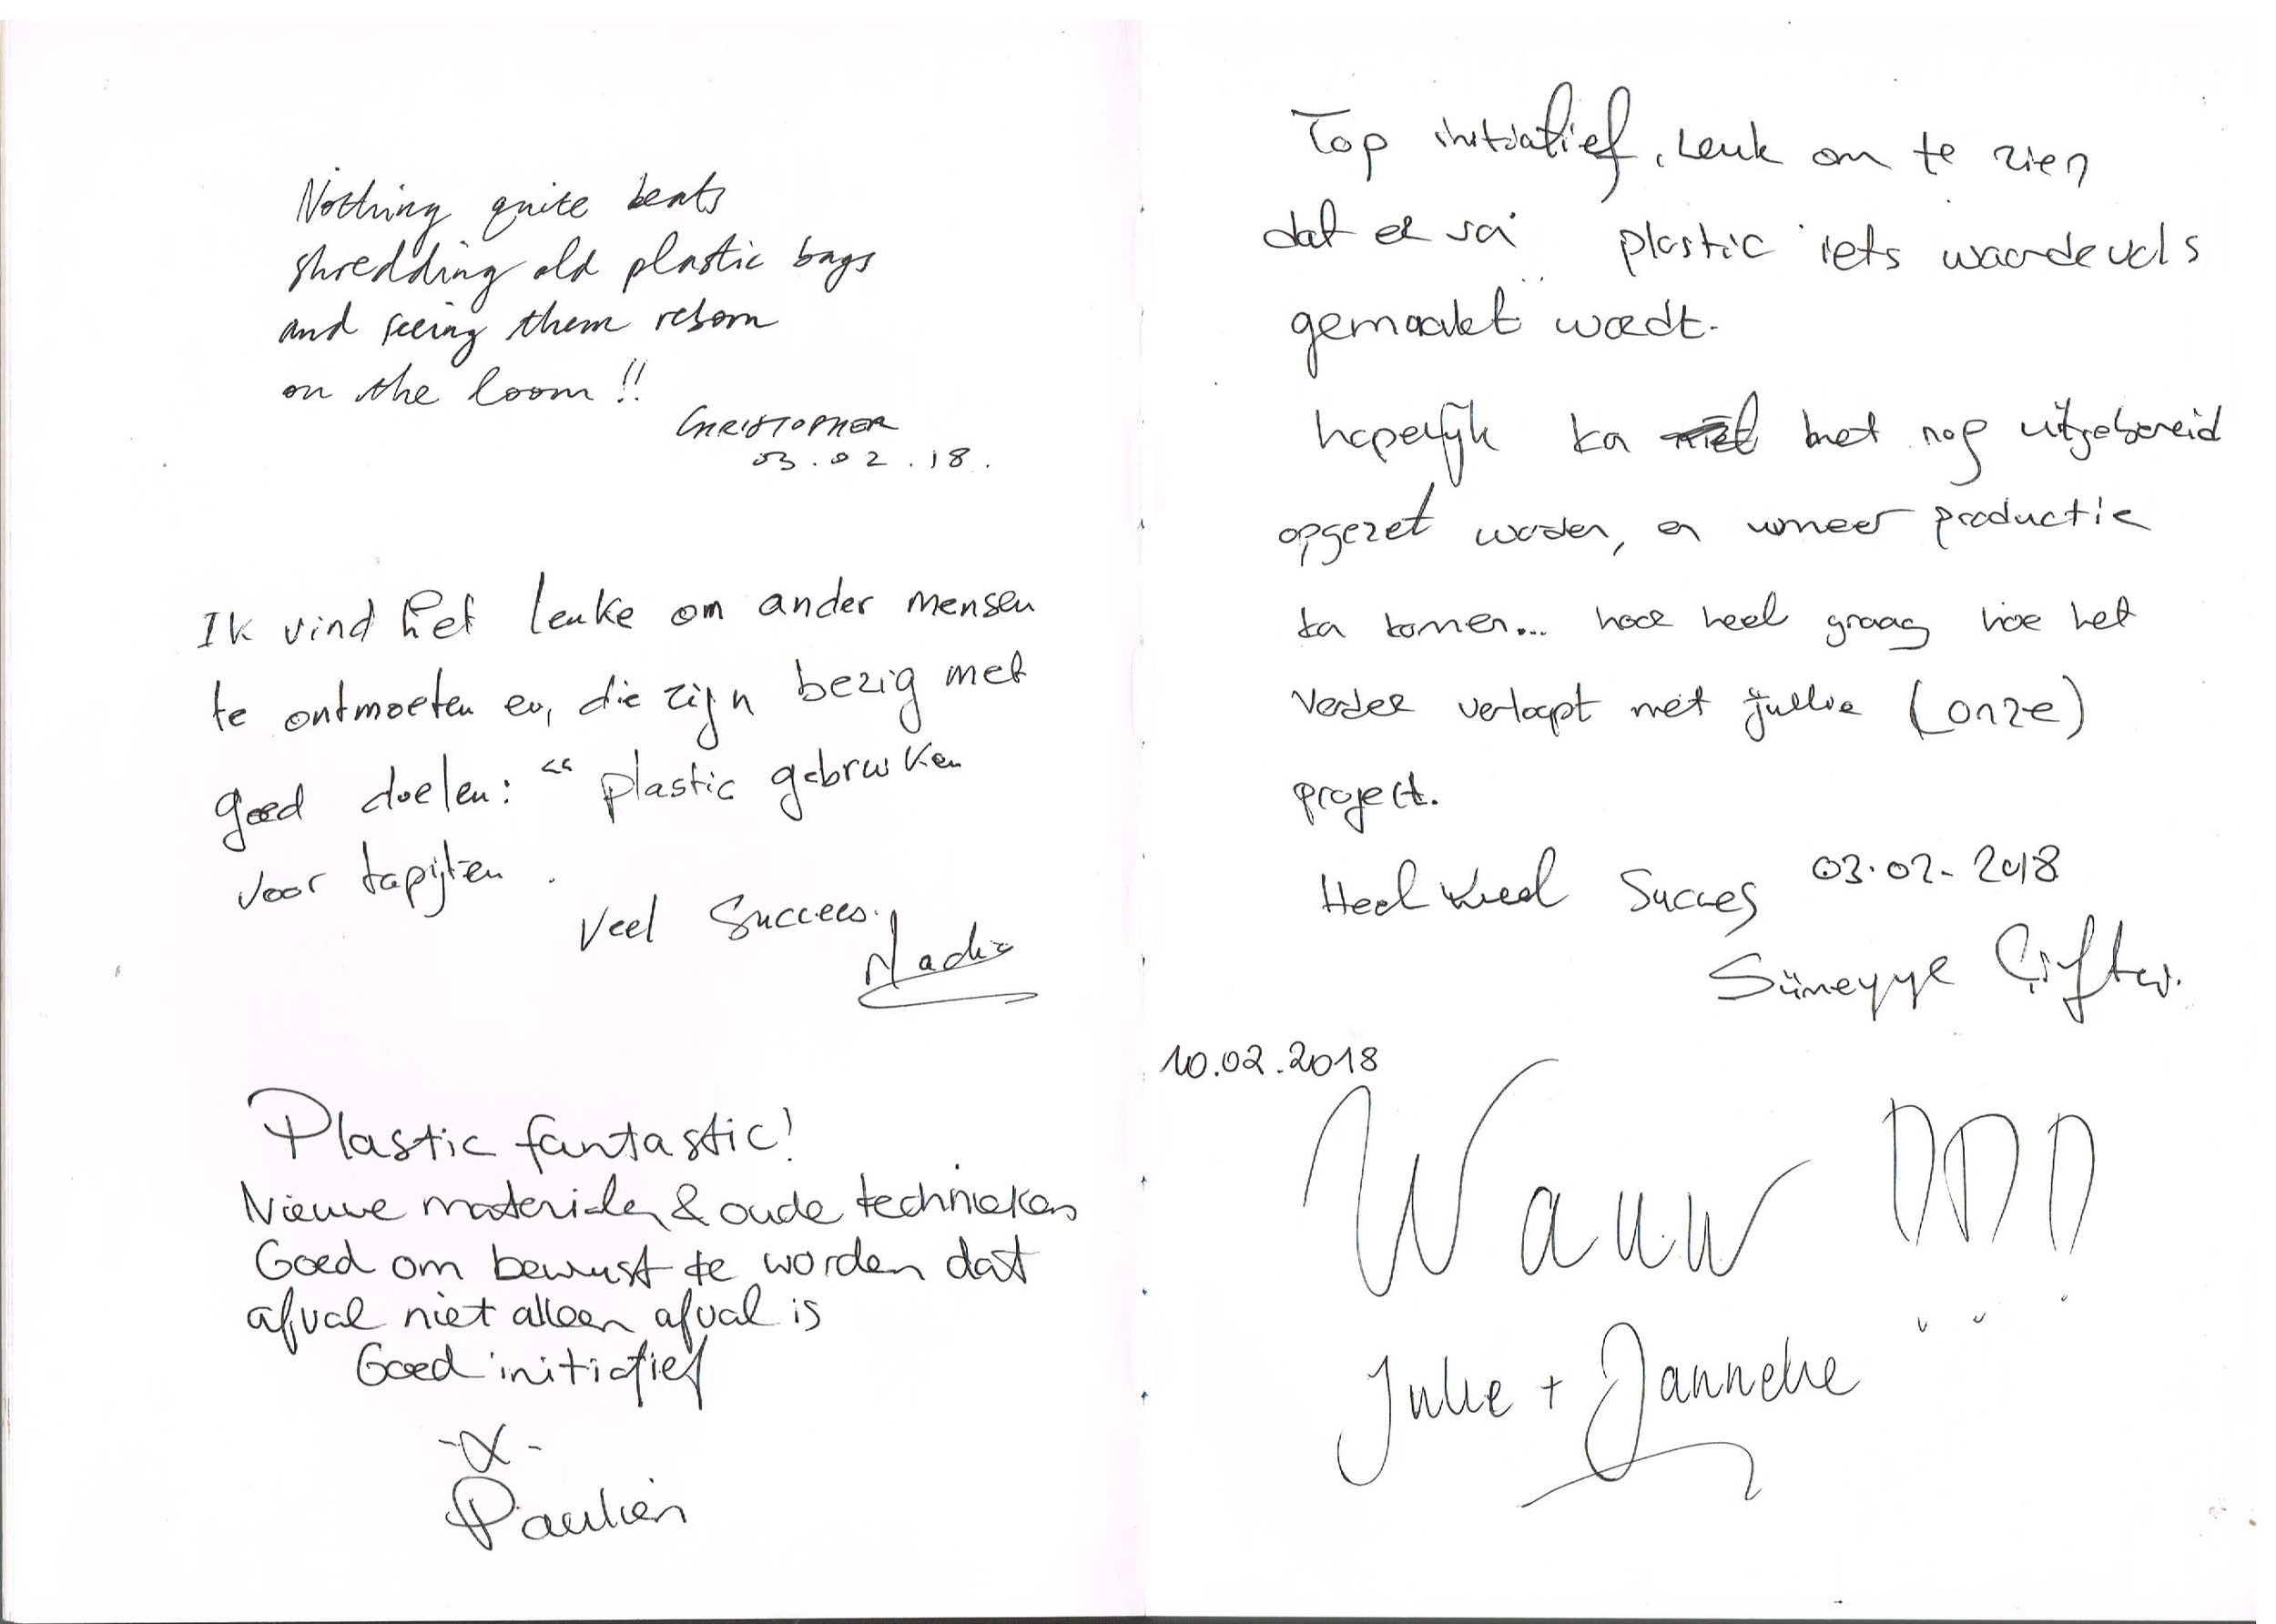 Nothing quite beats
shredding old plastic bags
and seeing them reborn
on the loom!!
CHRISTOPHER
03.02.18.
Ik vind het leuke om ander mensen
te ontmoeten en, die zijn bezig met
goed doelen: “ plastic gebruiken
voor tapijten.
Veel Succees.
Nadia
Plastic fantastic!
Nieuwe materialen & oude technieken
Goed om bewust te worden dat
afval niet alleen afval is
Goed initiatief
-X-
Paulien
Top initiatief, Leuk om te zien
dat er plastic iets waardevols
gemaakt wordt.
hopelijk ka het nog uitgebreid
opgezet worden, en productie
ka komen... hoor heel graag hoe het
verder verloopt met jullie (onze)
project.
Heel veel Succes 03.02-2018
Sümeyye Çiftci.
10.02.2018
Wauw !!!
Julie + Janneke